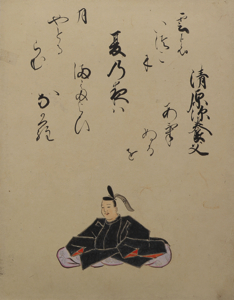 清原深養父
夏乃夜は
まだよひ
なから
あけ
ぬる
を
雲の
いつこ
に
月
やとる
らむ